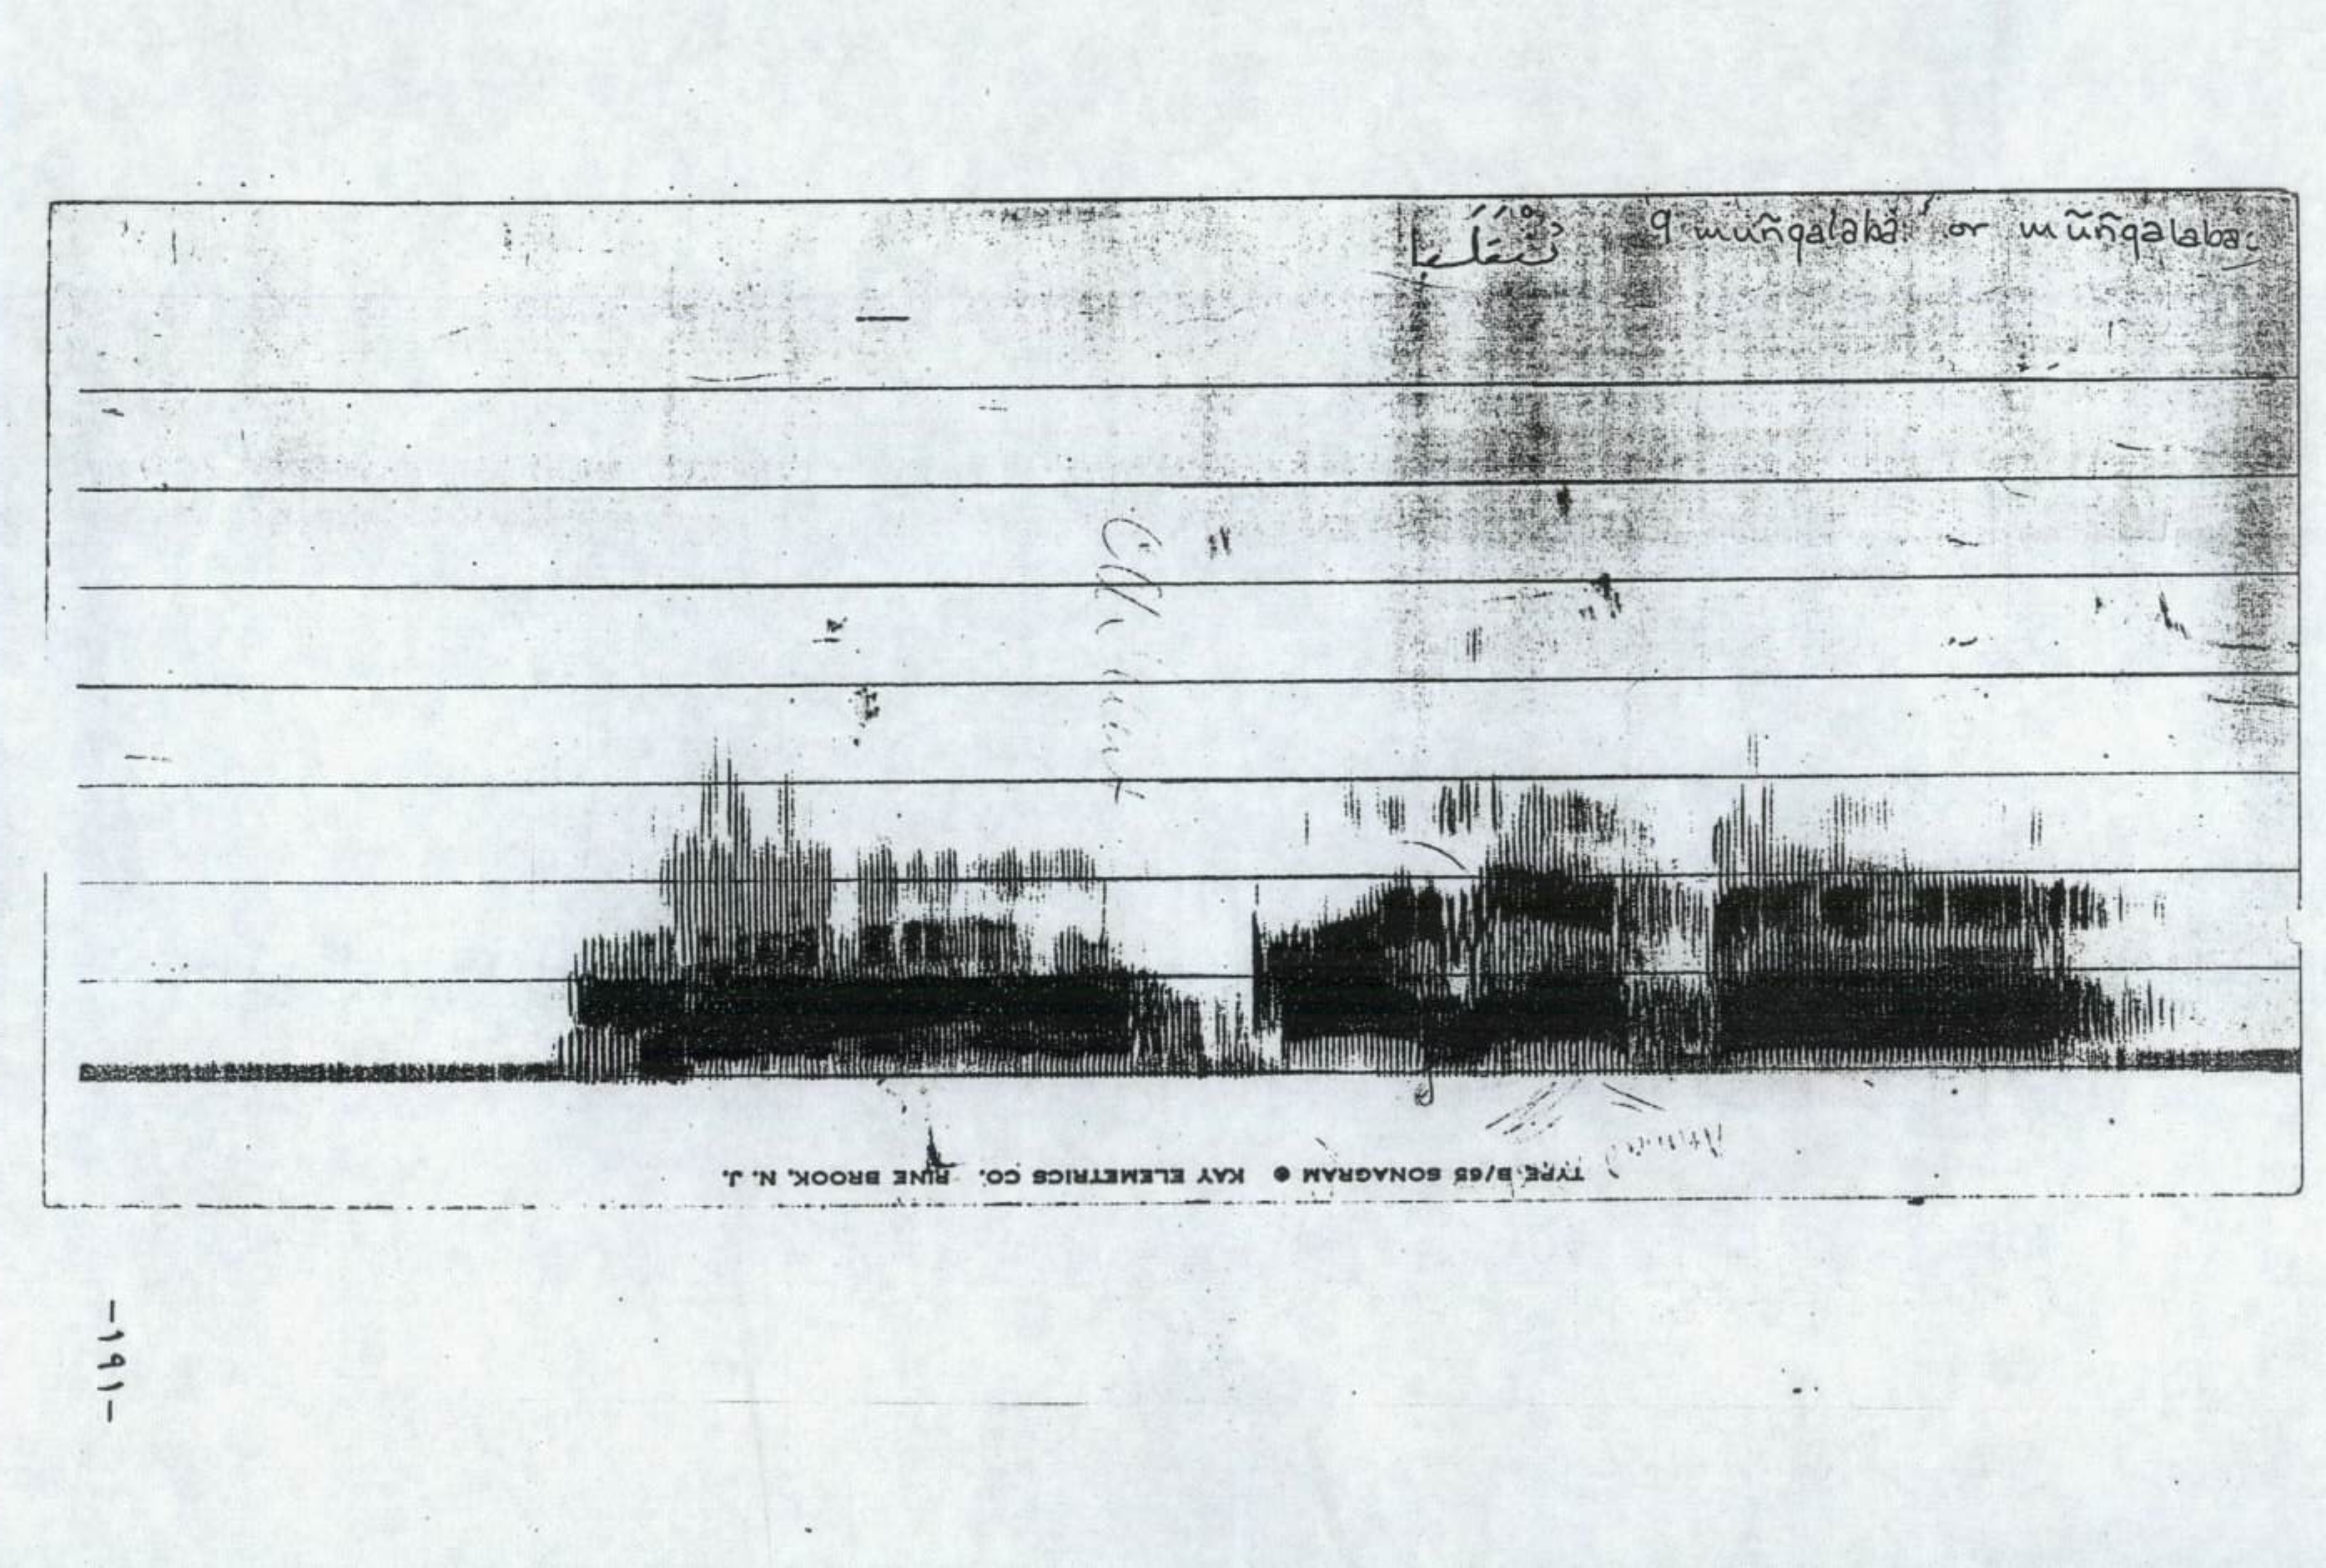 مُنْقَلَبَا 9 muñqalaba: or mũñqalaba:
TYPE B/65 SONAGRAM ● KAY ELEMETRICS CO. PINE BROOK, N. J.
-١٩١-